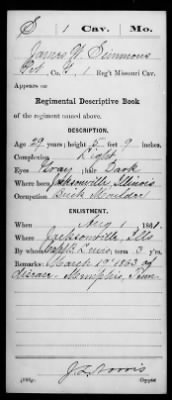 S | 1 | Cav. | Mo.
James W. Simmons
Co. , 1 Reg't Missouri Cav.
Appears on
Regimental Descriptive Book
of the regiment named above.
DESCRIPTION.
Age 29 years; height 5 feet 9 inches.
Complexion Light
Eyes Gray; hair Dark
Where born Jacksonville, Illinois
Occupation Brick Moulder
ENLISTMENT.
When Aug 1, 1861.
Where Jacksonville, Ills
By whom term 3 y'rs.
Remarks: March 1st 1863 of
disease Memphis, Tenn
J. L. Norris
Copyist.